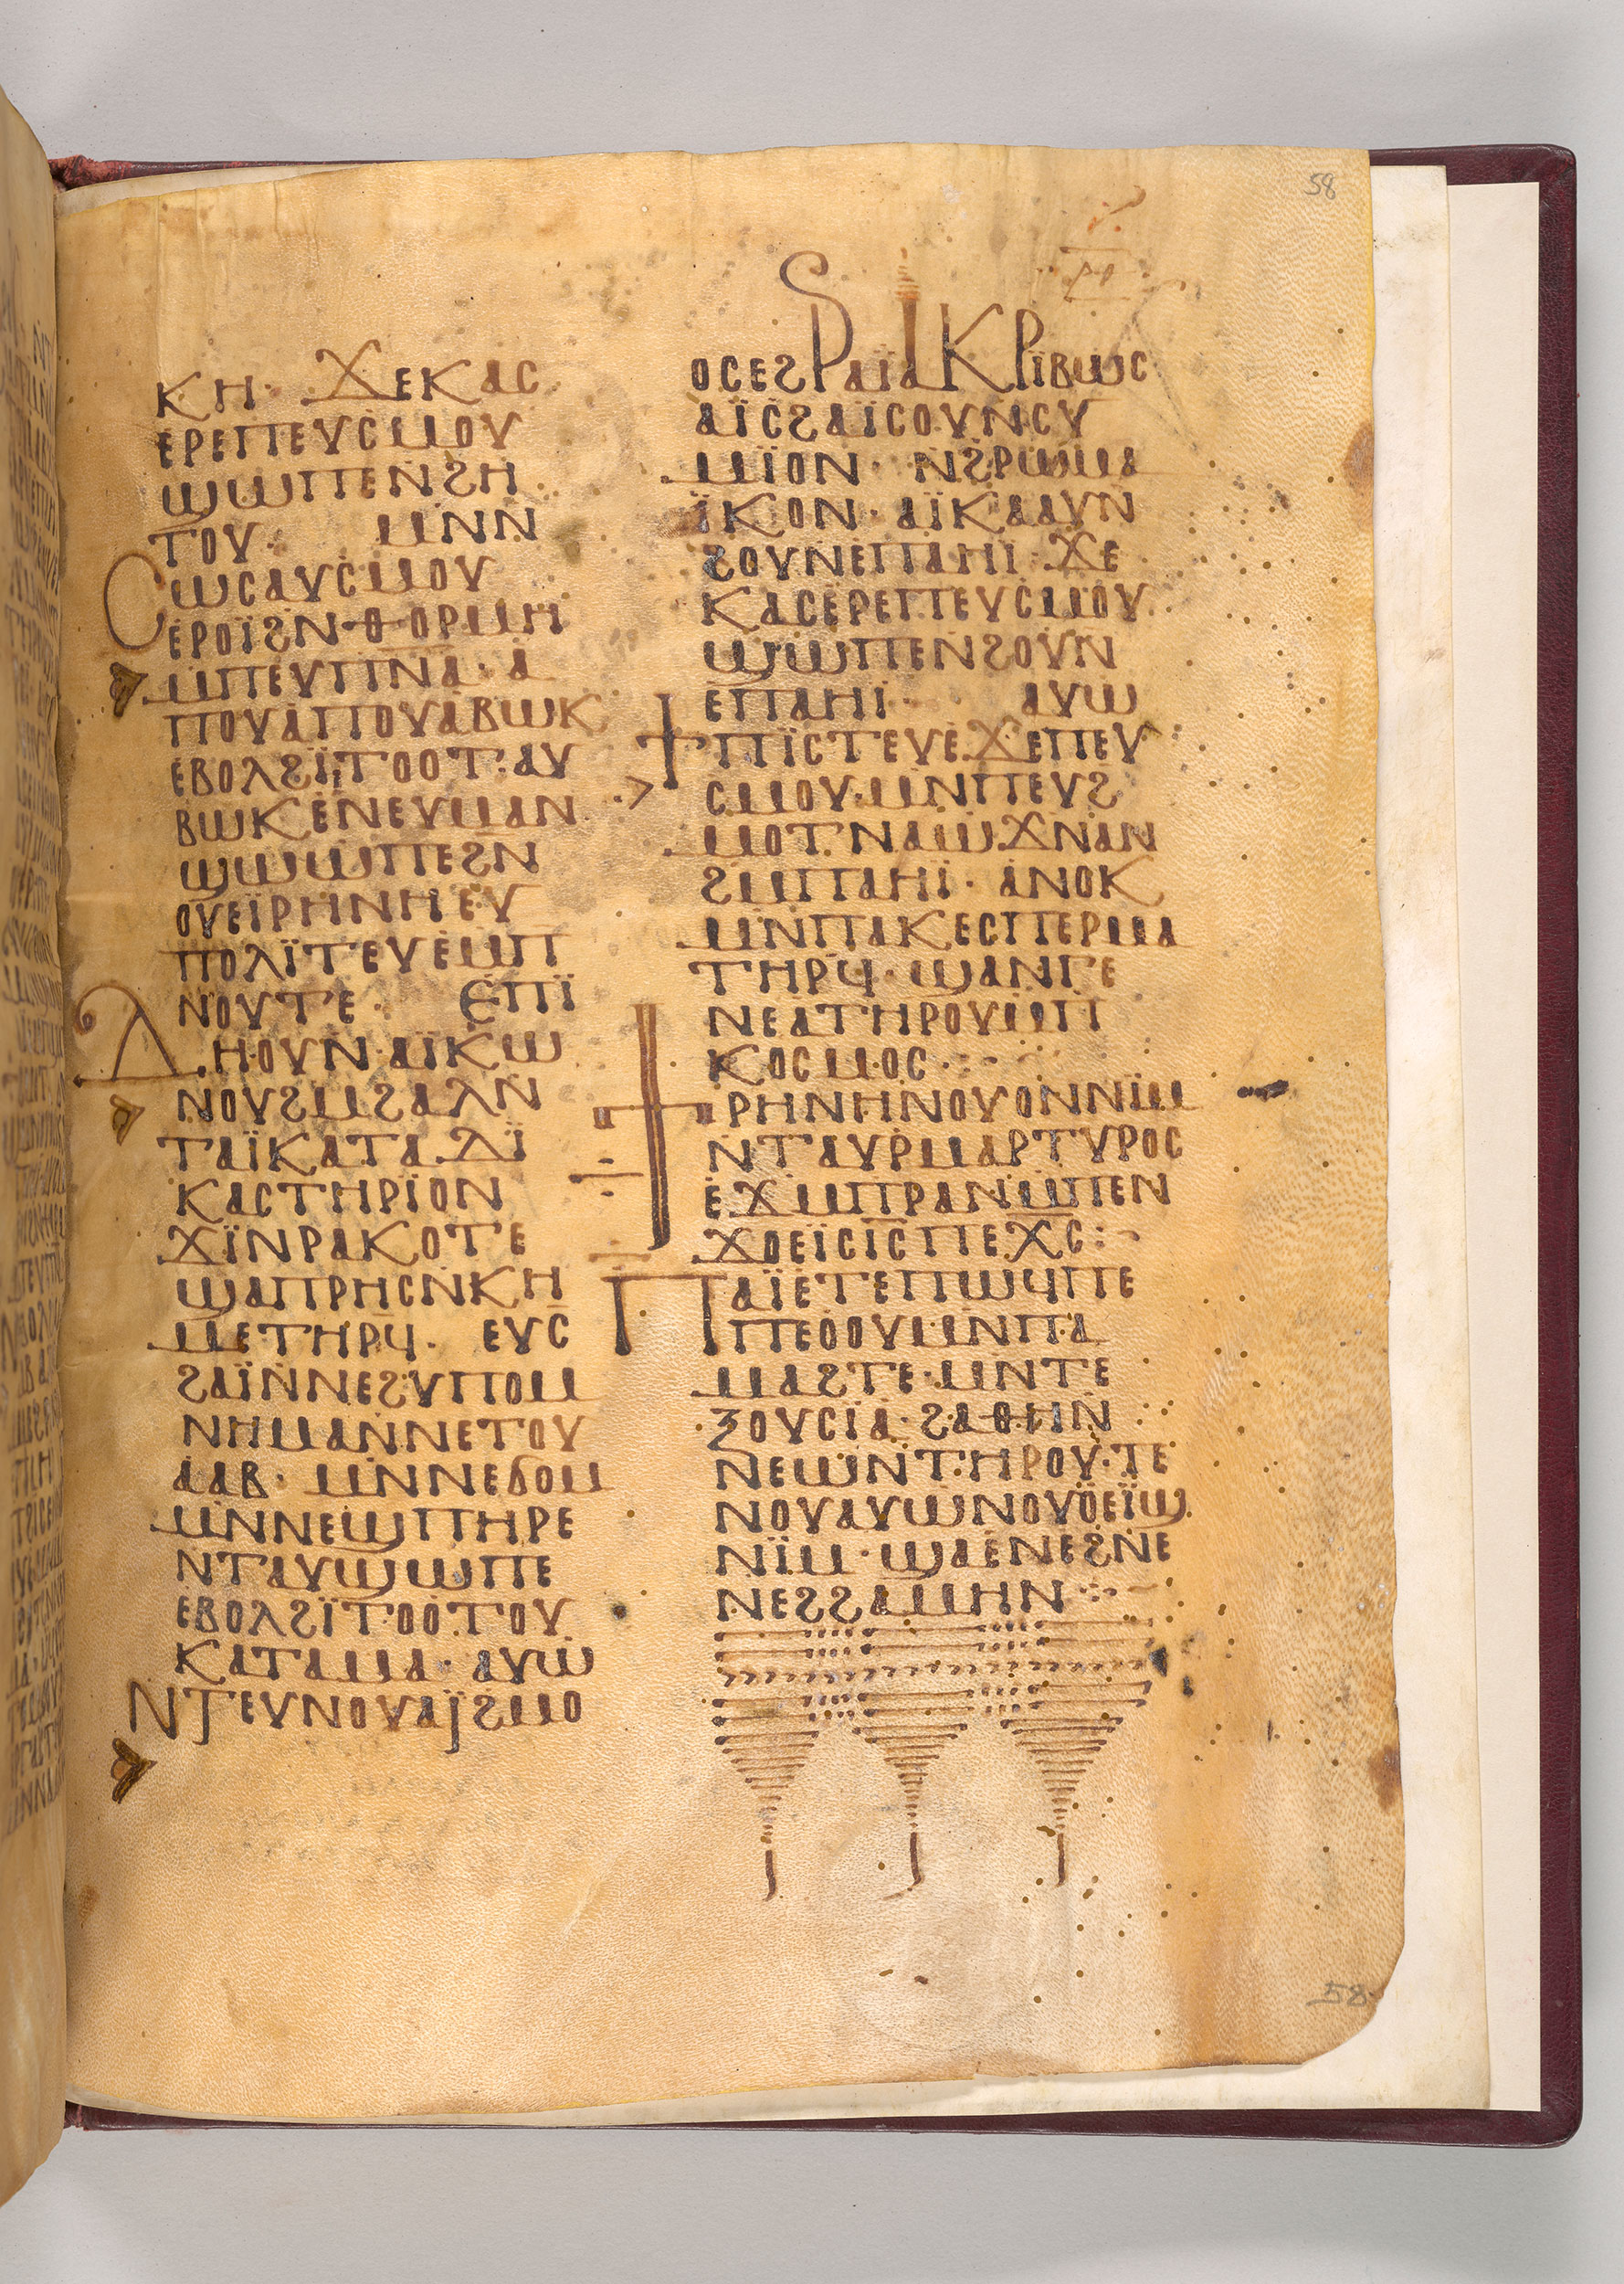 58
ⲕⲏ· ϫⲉⲕⲁⲥ
ⲉⲣⲉⲡⲉⲩⲥⲙⲟⲩ
ϣⲱⲡⲉⲛϩⲏ
ⲧⲟⲩ· ⲙⲛⲛ
ⲥⲱⲥⲁⲩⲥⲙⲟⲩ
ⲉⲣⲟⲓ̈ϩⲛⲑⲟⲣⲙⲏ
ⲙⲡⲉⲩⲡⲛⲁ· ⲁ
ⲡⲟⲩⲁⲡⲟⲩⲁⲃⲱⲕ
ⲉⲃⲟⲗϩⲓ̈ⲧⲟⲟⲧ: ⲁⲩ
ⲃⲱⲕⲉⲛⲉⲩⲙⲁⲛ
ϣⲱⲱⲡⲉϩⲛ
ⲟⲩⲉⲓ̈ⲣⲏⲛⲏⲉⲩ
ⲡⲟⲗⲓ̈ⲧⲉⲩⲉⲙⲡ
ⲛⲟⲩⲧⲉ· ⲉⲡⲓ̈
ⲇⲏⲟⲩⲛⲁⲓ̈ⲕⲱ
ⲛⲟⲩϩⲙϩⲁⲗⲛ
ⲧⲁⲓ̈ⲕⲁⲧⲁⲇⲓ̈
ⲕⲁⲥⲧⲏⲣⲓ̈ⲟⲛ
ϫⲓ̈ⲛⲣⲁⲕⲟⲧⲉ
ϣⲁⲡⲣⲏⲥⲛⲕⲏ
ⲙⲉⲧⲏⲣϥ· ⲉⲩⲥ
ϩⲁⲓ̈ⲛⲛⲉϩⲩⲡⲟⲙ
ⲛⲏⲙⲁⲛⲛⲉⲧⲟⲩ
ⲁⲁⲃ· ⲙⲛⲛⲉϭⲟⲙ
ⲙⲛⲛⲉϣⲡⲏⲣⲉ
ⲛⲧⲁⲩϣⲱⲡⲉ
ⲉⲃⲟⲗϩⲓ̈ⲧⲟⲟⲧⲟⲩ
ⲕⲁⲧⲁⲙⲁ· ⲁⲩⲱ
ⲛⲧⲉⲩⲛⲟⲩⲁⲓ̈ϩⲙⲟ
ⲟⲥⲉϩⲣⲁⲓ̈ⲁⲕⲣⲓ̈ⲃⲱⲥ
ⲁⲓ̈ⲥϩⲁⲓ̈ⲥⲟⲩⲛⲥⲩ
ⲙⲓ̈ⲟⲛ· ⲛϩⲣⲱⲙⲁ
ⲓ̈ⲕⲟⲛ· ⲁⲓ̈ⲕⲁⲁⲩⲛ
ϩⲟⲩⲛⲉⲡⲁⲏⲓ· ϫⲉ
ⲕⲁⲥⲉⲣⲉⲡⲉⲩⲥⲙⲟⲩ
ϣⲱⲡⲉⲛϩⲟⲩⲛ
ⲉⲡⲁⲏⲓ· ⲁⲩⲱ
ϯⲡⲓ̈ⲥⲧⲉⲩⲉϫⲉⲡⲉⲩ
ⲥⲙⲟⲩ·ⲙⲛⲡⲉⲩϩ
ⲙⲟⲧⲛⲁⲱϫⲛⲁⲛ
ϩⲙⲡⲁⲏⲓ̈· ⲁⲛⲟⲕ
ⲙⲛⲡⲁⲕⲉⲥⲡⲉⲣⲙⲁ
ⲧⲏⲣϥ· ϣⲁⲛⲅⲉ
ⲛⲉⲁⲧⲏⲣⲟⲩⲙⲡ
ⲕⲟⲥⲙⲟⲥ·
ϯⲣⲏⲛⲏⲛⲟⲩⲟⲛⲛⲓ̈ⲙ
ⲛⲧⲁⲩⲣⲙⲁⲣⲧⲩⲣⲟⲥ
ⲉϫⲙⲡⲣⲁⲛⲙⲡⲉⲛ
ϫⲟⲉⲓ̈ⲥⲓ̅ⲥ̅ⲡⲉⲭ̅ⲥ̅:
ⲡⲁⲓ̈ⲉⲧⲉⲡⲱϥⲡⲉ
ⲡⲉⲟⲟⲩⲙⲛⲡⲁ
ⲙⲁϩⲧⲉ·ⲙⲛⲧⲉ
ⲝⲟⲩⲥⲓⲁ·ϩⲁⲑⲏⲛ
ⲛⲉⲱⲛⲧⲏⲣⲟⲩ·ⲧⲉ
ⲛⲟⲩⲁⲩⲱⲛⲟⲩⲟ̈ⲉⲓ̈ϣ
ⲛⲓ̈ⲙ·ϣⲁⲉⲛⲉϩⲛⲉ
ⲛⲉϩϩⲁⲙⲏⲛ
58